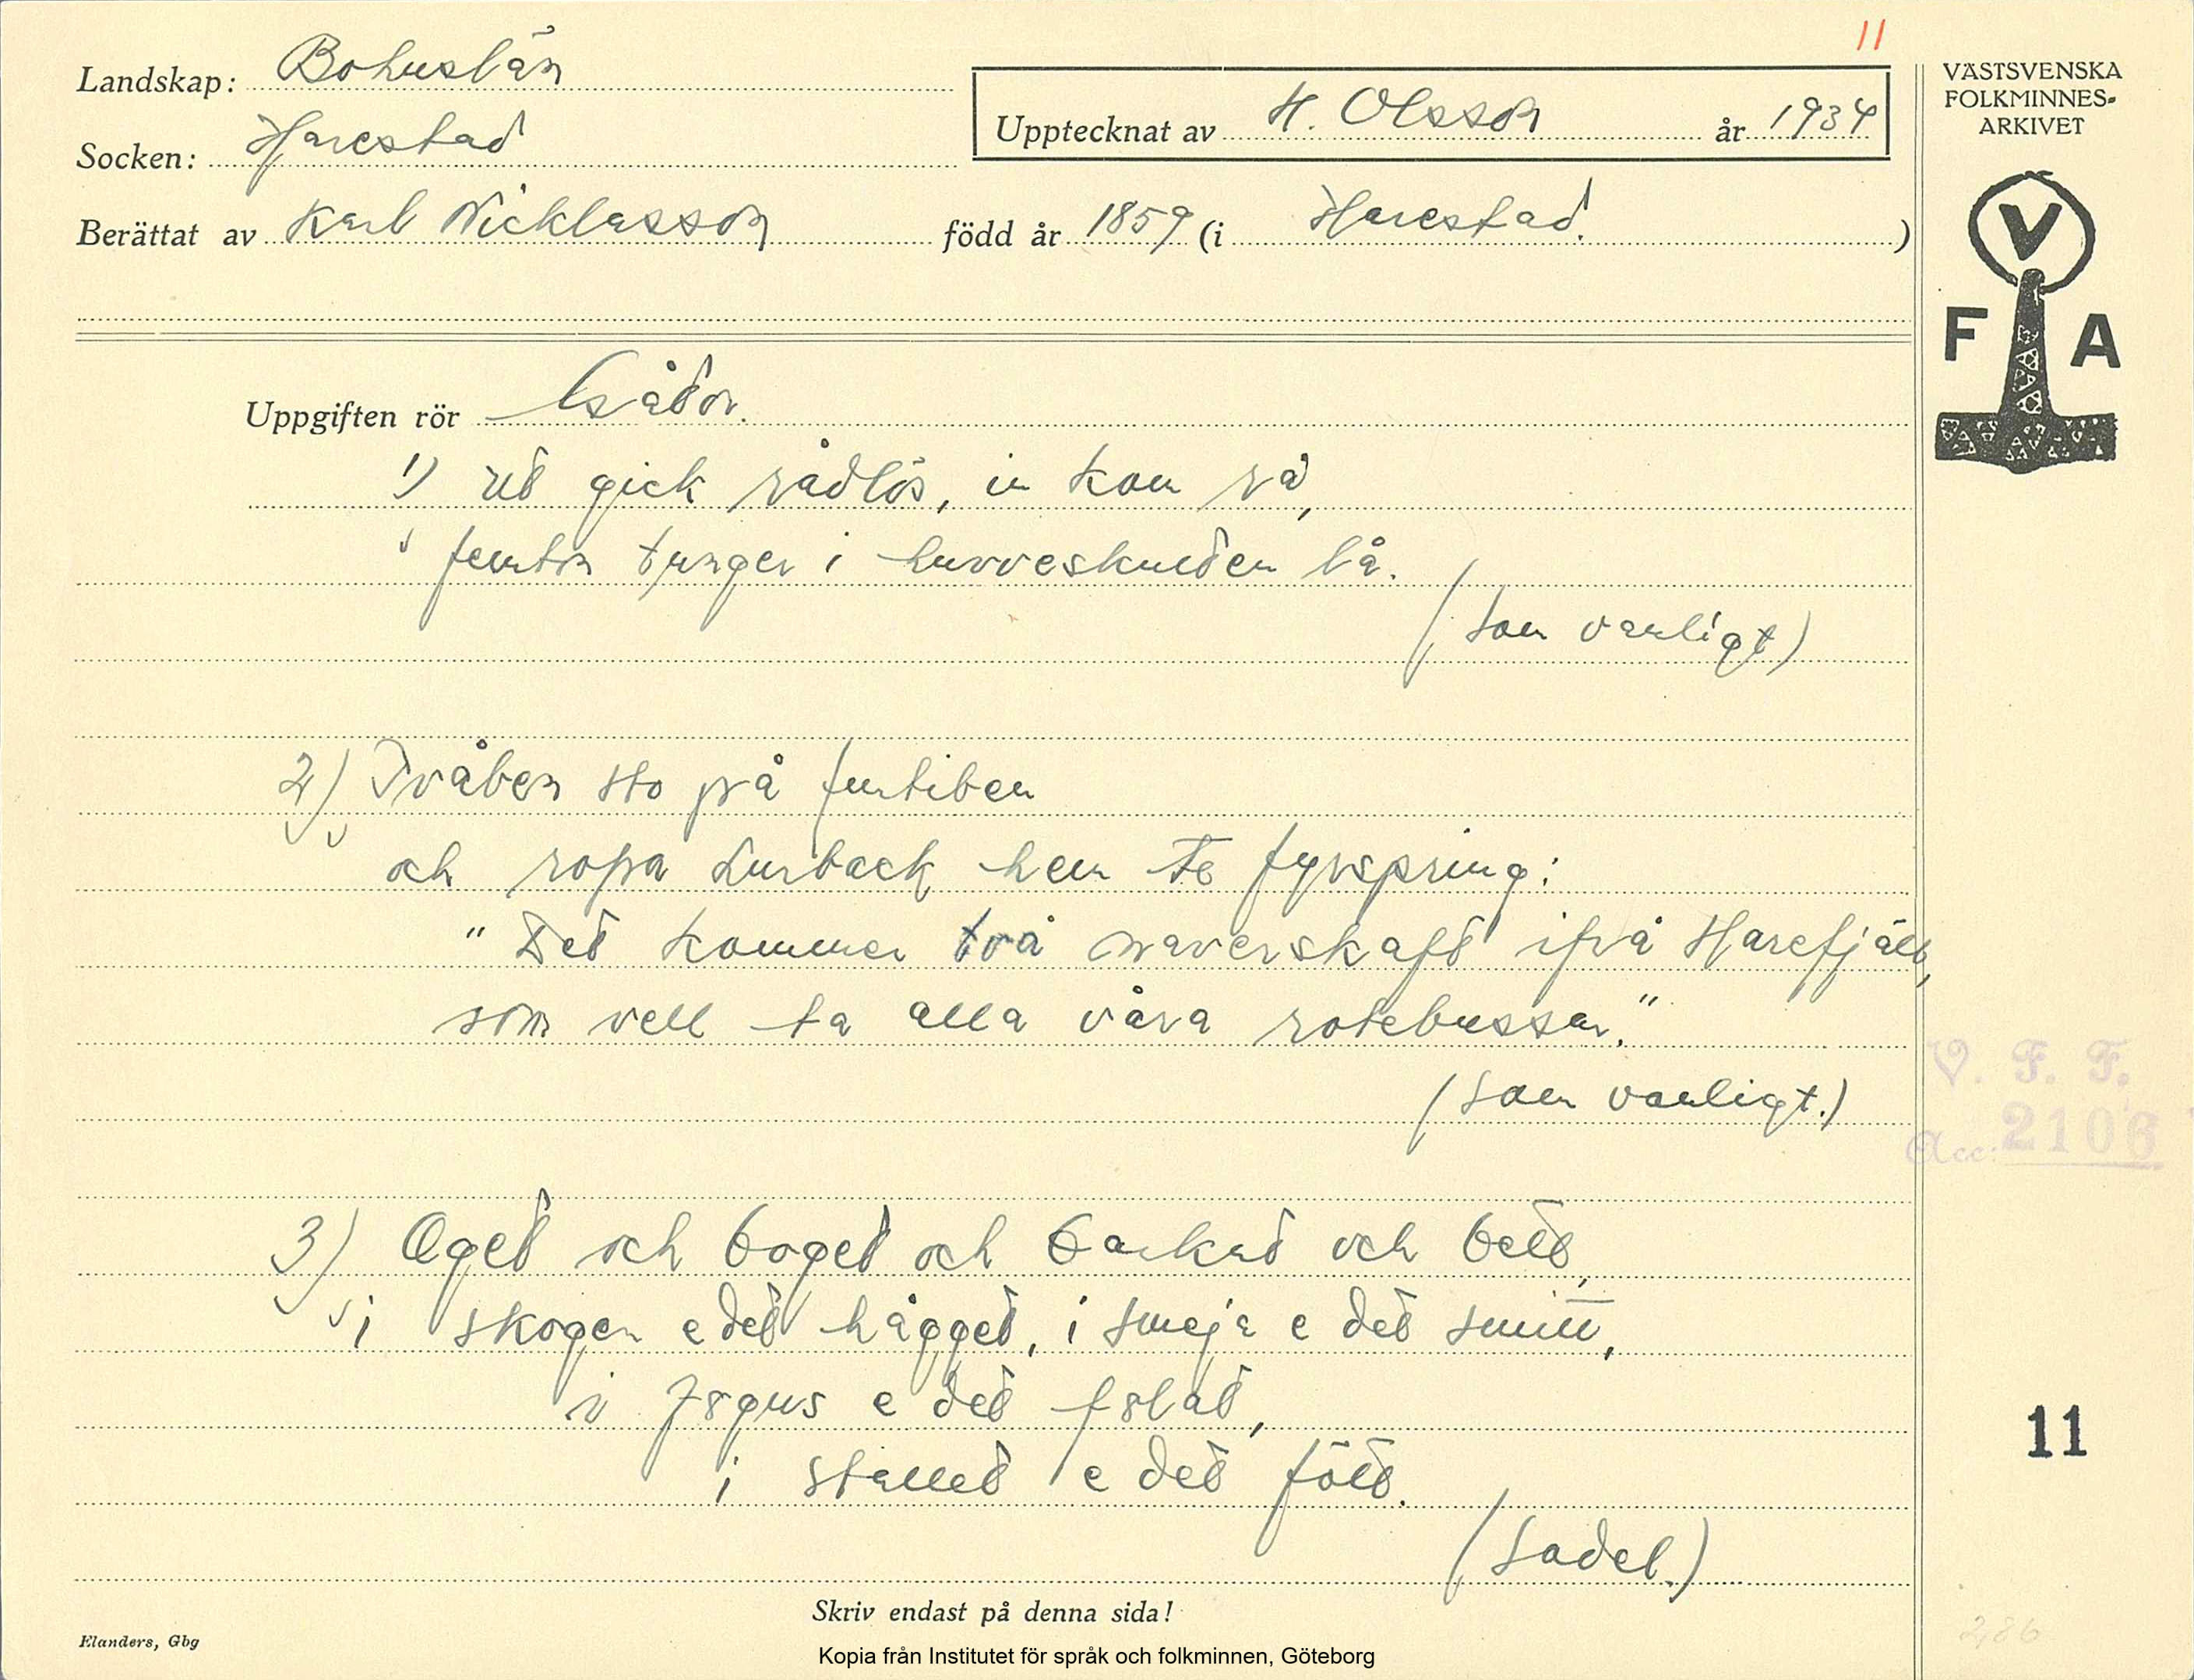 11
Landskap: Bohuslän
Socken: Harestad
Upptecknat av H. Olsson år 1934
Berättat av Karl Nicklasson född år 1859 (i Harestad.)
VÄSTSVENSKA
FOLKMINNES-
ARKIVET
V
F A
Uppgiften rör Gåtor.
1) Ut gick rådlös, in kom rå,
femton tunger i huvveskuden lå.
(Som vanligt)
2) Tvåben sto på femtiben
och ropa Lurback hem te fyrspring:
"Det kommer två naverskaft ifrå Harefjäll,
som vell ta alla våra rotebussar."
(Som vanligt.)
V. F. F.
Acc: 2106
3) Öget och boget och bankad och bett,
i skogen e det hågget, i smeja e det smitt,
i e det
i stallet e det fött.
(Sadel.)
11
Skriv endast på denna sida!
Elanders, Gbg
286
Kopia från Institutet för språk och folkminnen, Göteborg